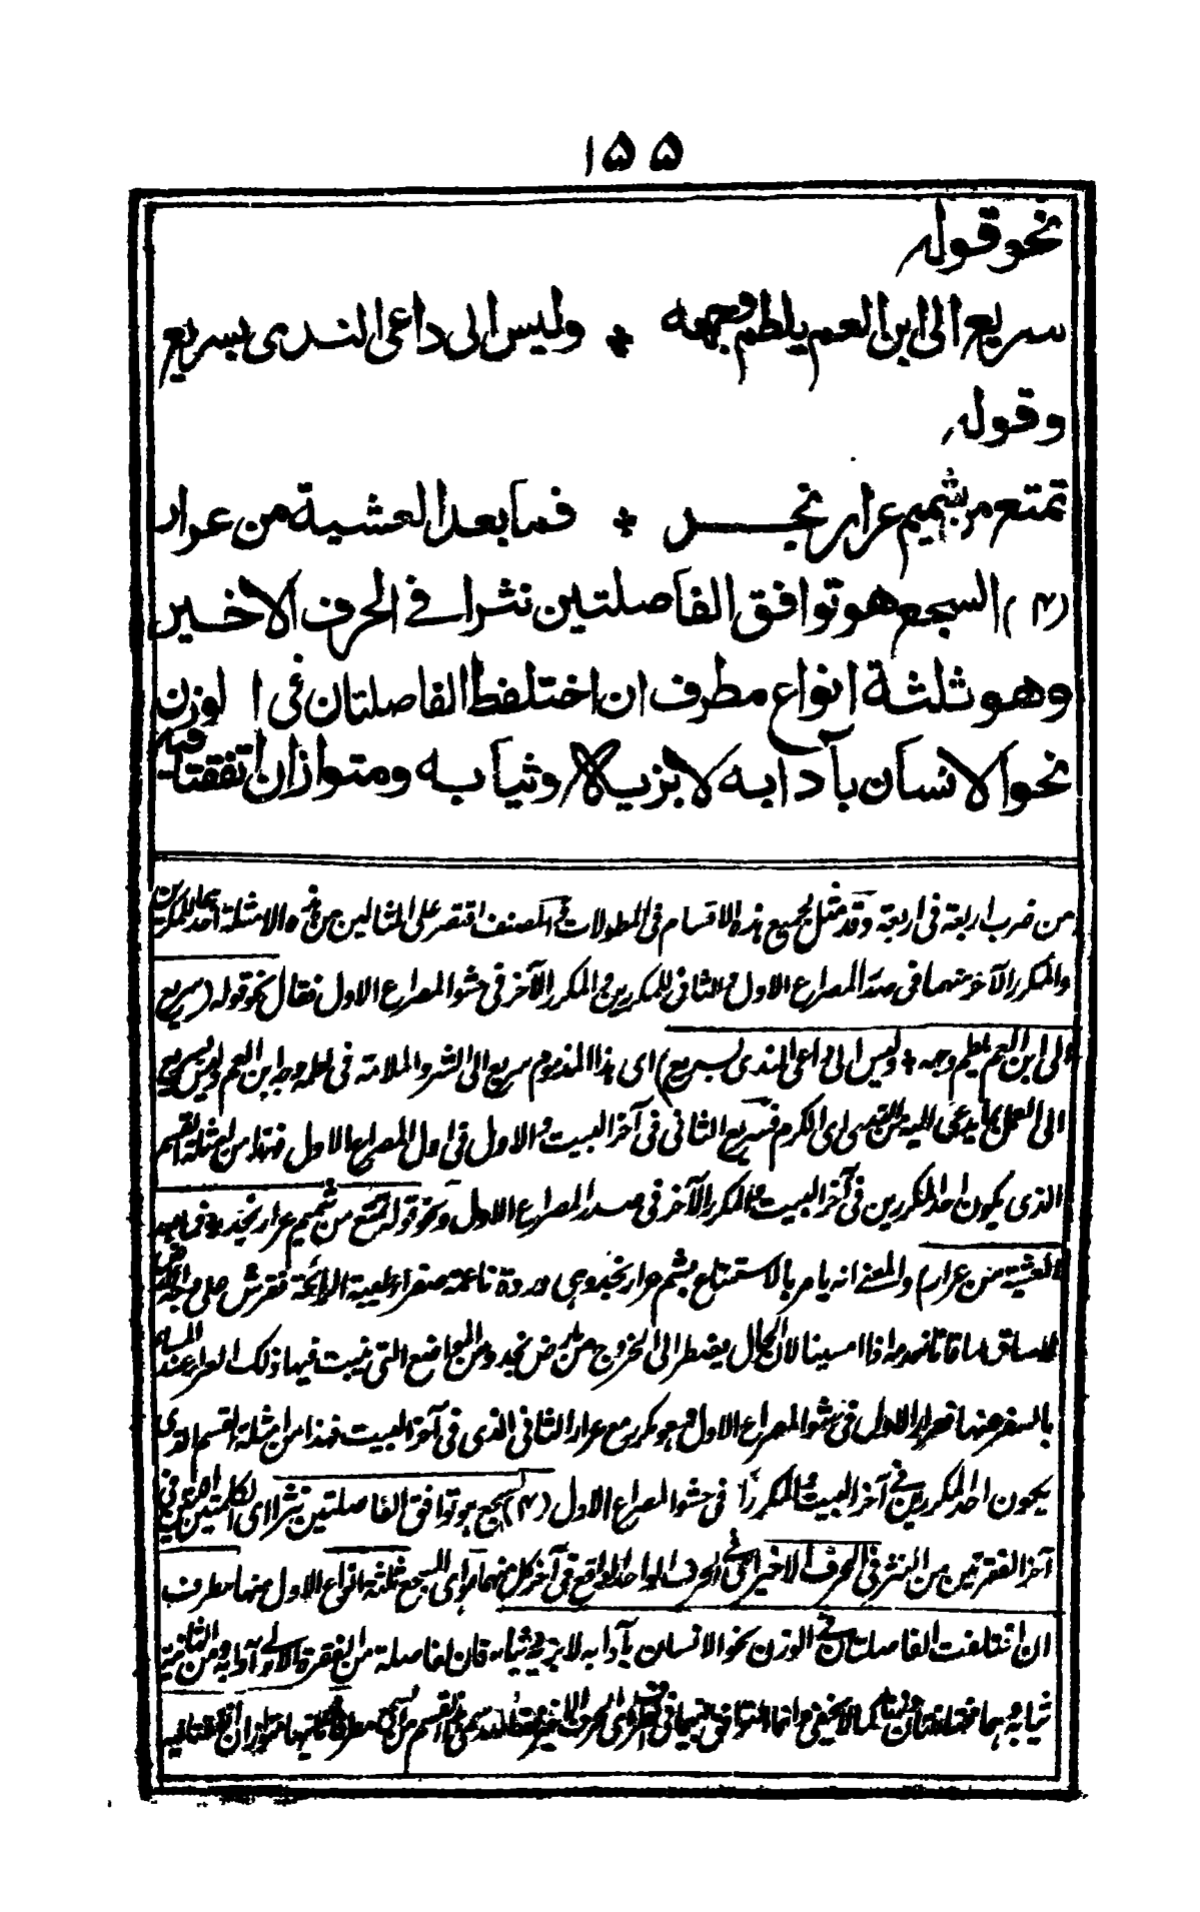 ١٥٥
نحو قوله
سريع الى ابن العم يلطم وجهه * وليس الى داعى الندى بسريع
وقوله
تمتع من شميم عرار نجد * فما بعد العشية من عرار
(٤) السجع هو توافق الفاصلتين نثرا فى الحرف الاخير
وهو ثلثة انواع مطرف ان اختلفط الفاصلتان فى الوزن
نحو الانسان بآدابه لا بزيه وثيابه ومتوازان اتفقتا فيه
من ضرب اربعة فى اربعة وقد مثل لجميع هذه الاقسام فى المطولات والمصنف اقتصر على المثالين من هذه الامثلة احدهما
والمكرر الآخر منهما فى صدر المصراع الاول والثانى للمكررين والمكرر الآخر فى حشو المصراع الاول فقال نحو قوله (سريع
الى ابن العم يلطم وجهه * وليس الى داعى الندى بسريع) اى هذا المذموم سريع الى الشر والملامة فى لطمه وجه ابن العم وليس بسريع
الى العمل بما يدعى اليه من الندى اى الكرم فسريع الثانى فى آخر البيت والاول فى اول المصراع الاول فهذا من امثلة القسم
الذى يكون احد المكررين فى آخر البيت والمكرر الآخر فى صدر المصراع الاول ونحو قوله تمتع من شميم عرار نجد * فما بعد
العشية من عرار) والمعنى انه يامر بالاستمتاع بشم عرار نجد وهى وردة ناعمة صفراء طيبة الرائحة
اذا امسينا لان الحال يضطر الى الخروج من ارض نجد ومن المواضع التى ينبت فيها ذلك العرار عند المساء
بالسفر عنها فعرار الاول فى حشو المصراع الاول وهو مكرر مع عرار الثانى الذى فى آخر البيت فهذا من امثلة القسم الذى
يكون احد المكررين فى آخر البيت والمكرر فى حشو المصراع الاول (٤) السجع هو توافق الفاصلتين نثرا اى الكلمتين
آخر الفقرتين من النثر فى الحرف الاخير اى فى الحرف الواحد الواقع فى آخر كل منهما وهو اى السجع ثلثة انواع الاول منها مطرف
ان اختلفت الفاصلتان فى الوزن نحو الانسان بآدابه لا بزيه وثيابه فان الفاصلة من الفقرة الاولى آدابه ومن الثانية
ثيابه وهما مختلفتان كما لا يخفى وانما التوافق بينهما فى الحرف الاخير